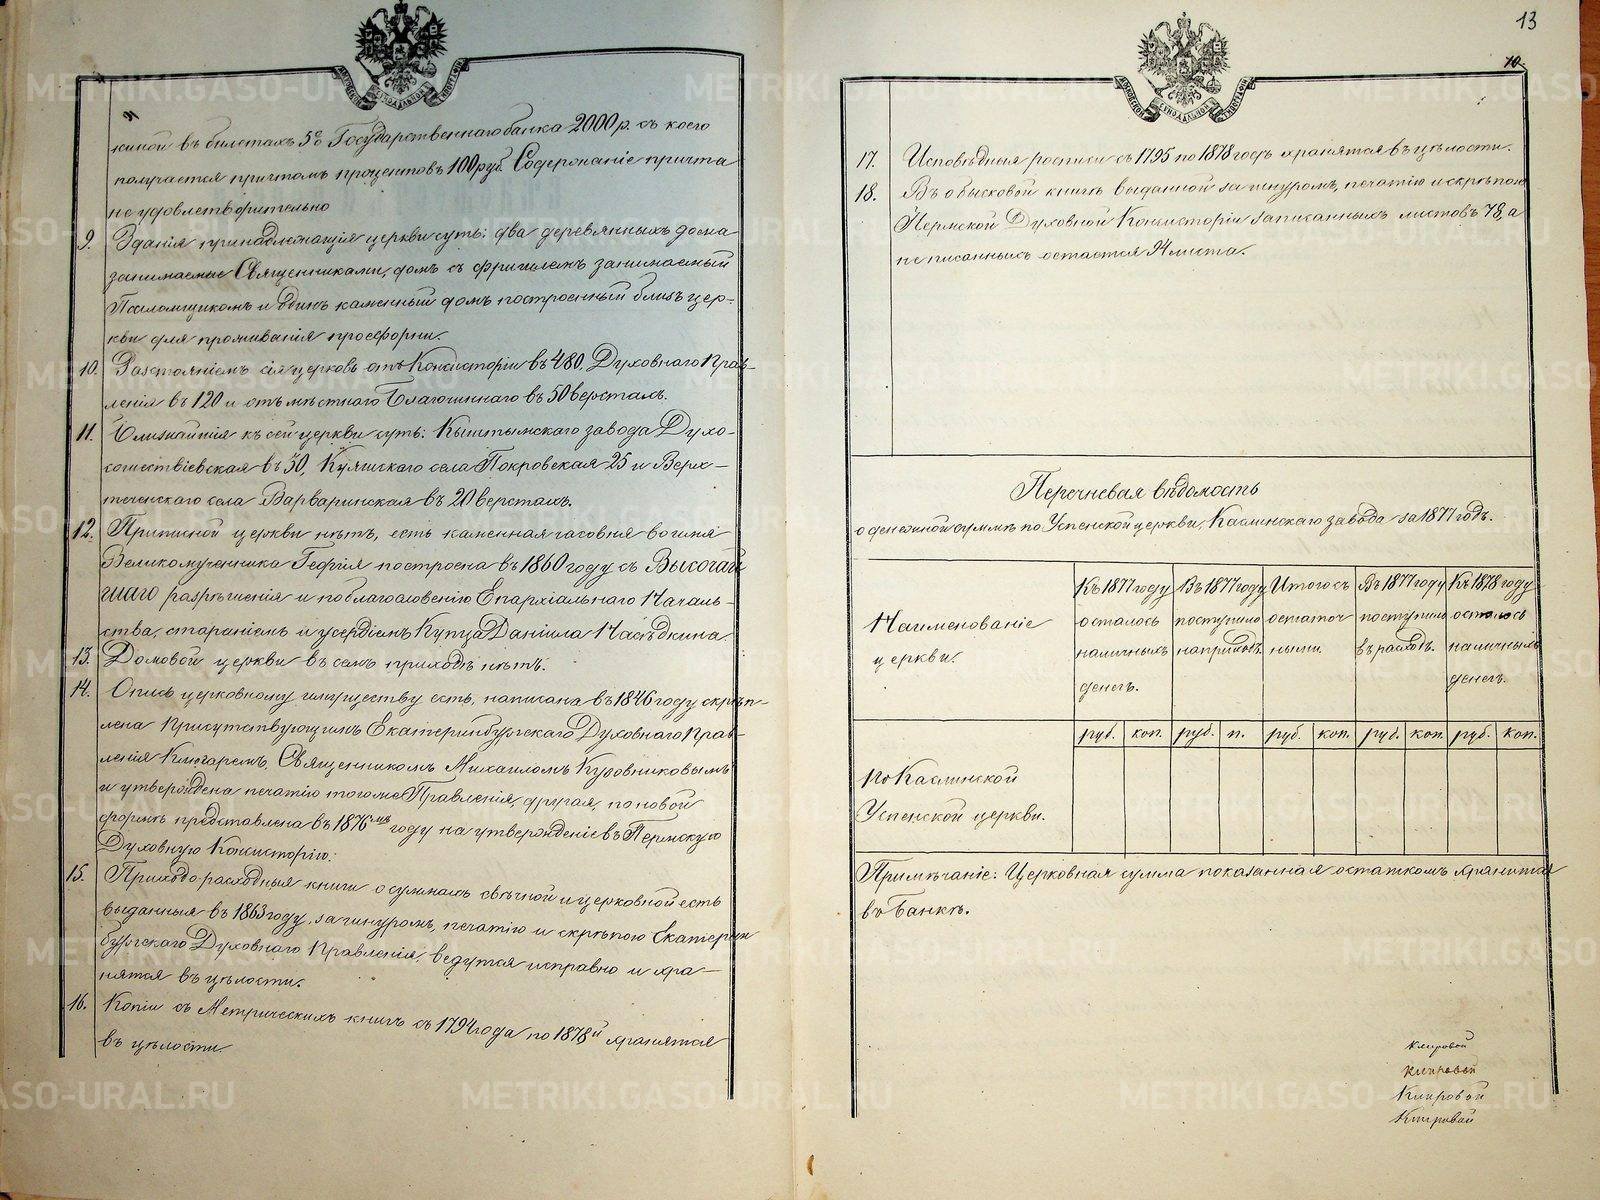 киной въ билетахъ 5% Государственнаго банка 2000 р. съ коего
получается причтомъ процентовъ 100 руб. Содержаніе причта
не удовлетворительно
9. Зданія принадлежащія церкви суть: два деревянныхъ дома
занимаемые Священниками, домъ съ флигилемъ занимаемый
Псаломщикомъ и одинъ каменный домъ построенный близъ цер-
кви для проживанія просфорни.
10. Разстояніемъ сія церковь отъ Консисторіи въ 480, Духовнаго Прав-
ленія въ 120 и отъ мѣстнаго Благочиннаго въ 50 верстахъ.
11. Ближайшія къ сей церкви суть: Кыштымскаго завода Духо-
сошествіевская въ 30, Куяшскаго села Покровская 25 и Верх-
теченскаго села Варваринская въ 20 верстахъ.
12. Приписной церкви нѣтъ, есть каменная часовня во имя
Великомученника Георгія построена въ 1860 году съ Высочай
шаго разрѣшенія и по благословенію Епархіальнаго Началь-
ства, стараніемъ и усердіемъ Купца Даніила Насѣдкина.
13. Домовой церкви въ семъ приходѣ нѣтъ.
14. Опись церковному имуществу есть, написана въ 1846 году скрѣп-
лена Присутствующимъ Екатеринбургскаго Духовнаго Прав-
ленія Ключаремъ, Священникомъ Михаиломъ Кудовниковымъ
и утверждена печатію того же Правленія, другая, по новой
формѣ представлена въ 1876мъ году на утвержденіе въ Пермскую
Духовную Консисторію.
15. Приходо-расходныя книги о суммахъ свѣчной и церковной есть
выданныя въ 1863 году, за шнуромъ, печатію и скрѣпою Екатерин
бургскаго Духовнаго Правленія, ведутся исправно и хра-
нятся въ цѣлости.
16. Копіи съ Метрическихъ книгъ съ 1794 года по 1878й хранятся
въ цѣлости.
13
10.
17. Исповѣдныя росписи съ 1795 по 1878 годъ хранятся въ цѣлости.
18. Въ обысковой книгѣ выданной за шнуромъ, печатію и скрѣпою
Пермской Духовной Консисторіи записанныхъ листовъ 78, а
неписанныхъ остается 94 листа.
Перечневая вѣдомость
о денежной суммѣ по Успенской церкви, Каслинскаго завода за 1877 годъ.
Наименованіе церкви.
Къ 1877 году осталось наличныхъ денегъ.
Въ 1877 году поступило на приходъ.
Итого съ остаточными.
Въ 1877 году поступило въ расходъ.
Къ 1878 году осталось наличныхъ денегъ.
руб. коп. руб. п. руб. коп. руб. коп. руб. коп.
По Каслинской
Успенской церкви.
Примѣчаніе: Церковная сумма показанная остаткомъ хранится
въ Банкѣ.
Клировой
Клировой
Клировой
Клировой
METRIKI.GASO-URAL.RU